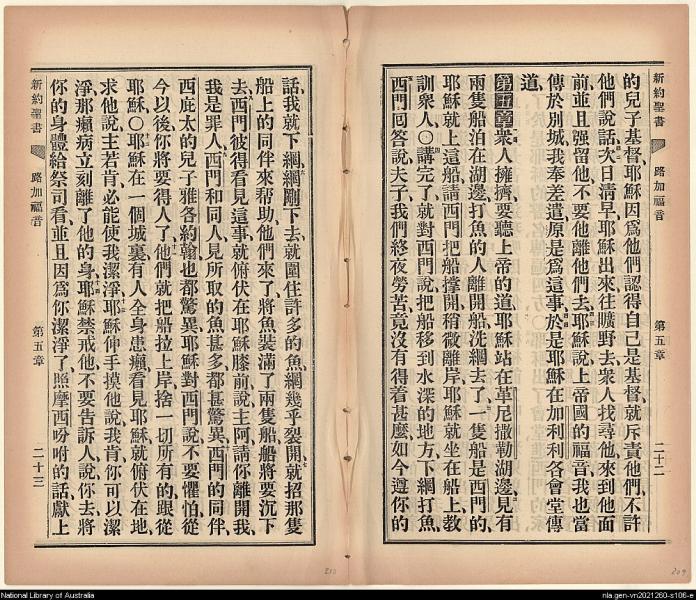 新約聖書 路加福音 第五章 二十二
的兒子基督、耶穌因爲他們認得自己是基督、就斥責他們、不許
他們說話、次日清早、耶穌出來往曠野去、衆人找尋他、來到他面
前、並且强留他、不要他離他們去、耶穌說、上帝國的福音、我也當
傳於別城、我奉差遣、原是爲這事、於是耶穌在加利利各會堂傳
道、
第五章 衆人擁擠要聽上帝的道、耶穌站在革尼撒勒湖邊、見有
兩隻船泊在湖邊、打魚的人離開船洗網去了、一隻船是西門的、
耶穌就上這船、請西門把船撑開、稍微離岸、耶穌就坐在船上敎
訓衆人、○講完了、就對西門說、把船移到水深的地方、下網打魚、
西門回答說、夫子、我們終夜勞苦、竟沒有得着甚麼、如今遵你的
話、我就下網、網剛下去、就圍住許多的魚、網幾乎裂開、就招那隻
船上的同伴來幫助、他們來了、將魚裝滿了兩隻船、船將要沉下
去、西門彼得看見這事、就俯伏在耶穌膝前說、主阿、請你離開我、
我是罪人、西門和同人、見所取的魚甚多、都甚驚異、西門的同伴、
西庇太的兒子雅各約翰、也都驚異、耶穌對西門說、不要懼怕、從
今以後、你將要得人了、他們就把船拉上岸、捨一切所有的、跟從
耶穌、○耶穌在一個城裏、有人全身患癩、看見耶穌、就俯伏在地、
求他說、主若肯、必能使我潔淨、耶穌伸手摸他說、我肯、你可以潔
淨、那癩病立刻離了他的身、耶穌禁戒他、不要告訴人、說、你去將
你的身體給祭司看、並且因爲你潔淨了、照摩西吩咐的話、獻上
新約聖書 路加福音 第五章 二十三
210
209
National Library of Australia
nla.gen-vn2021260-s106-e